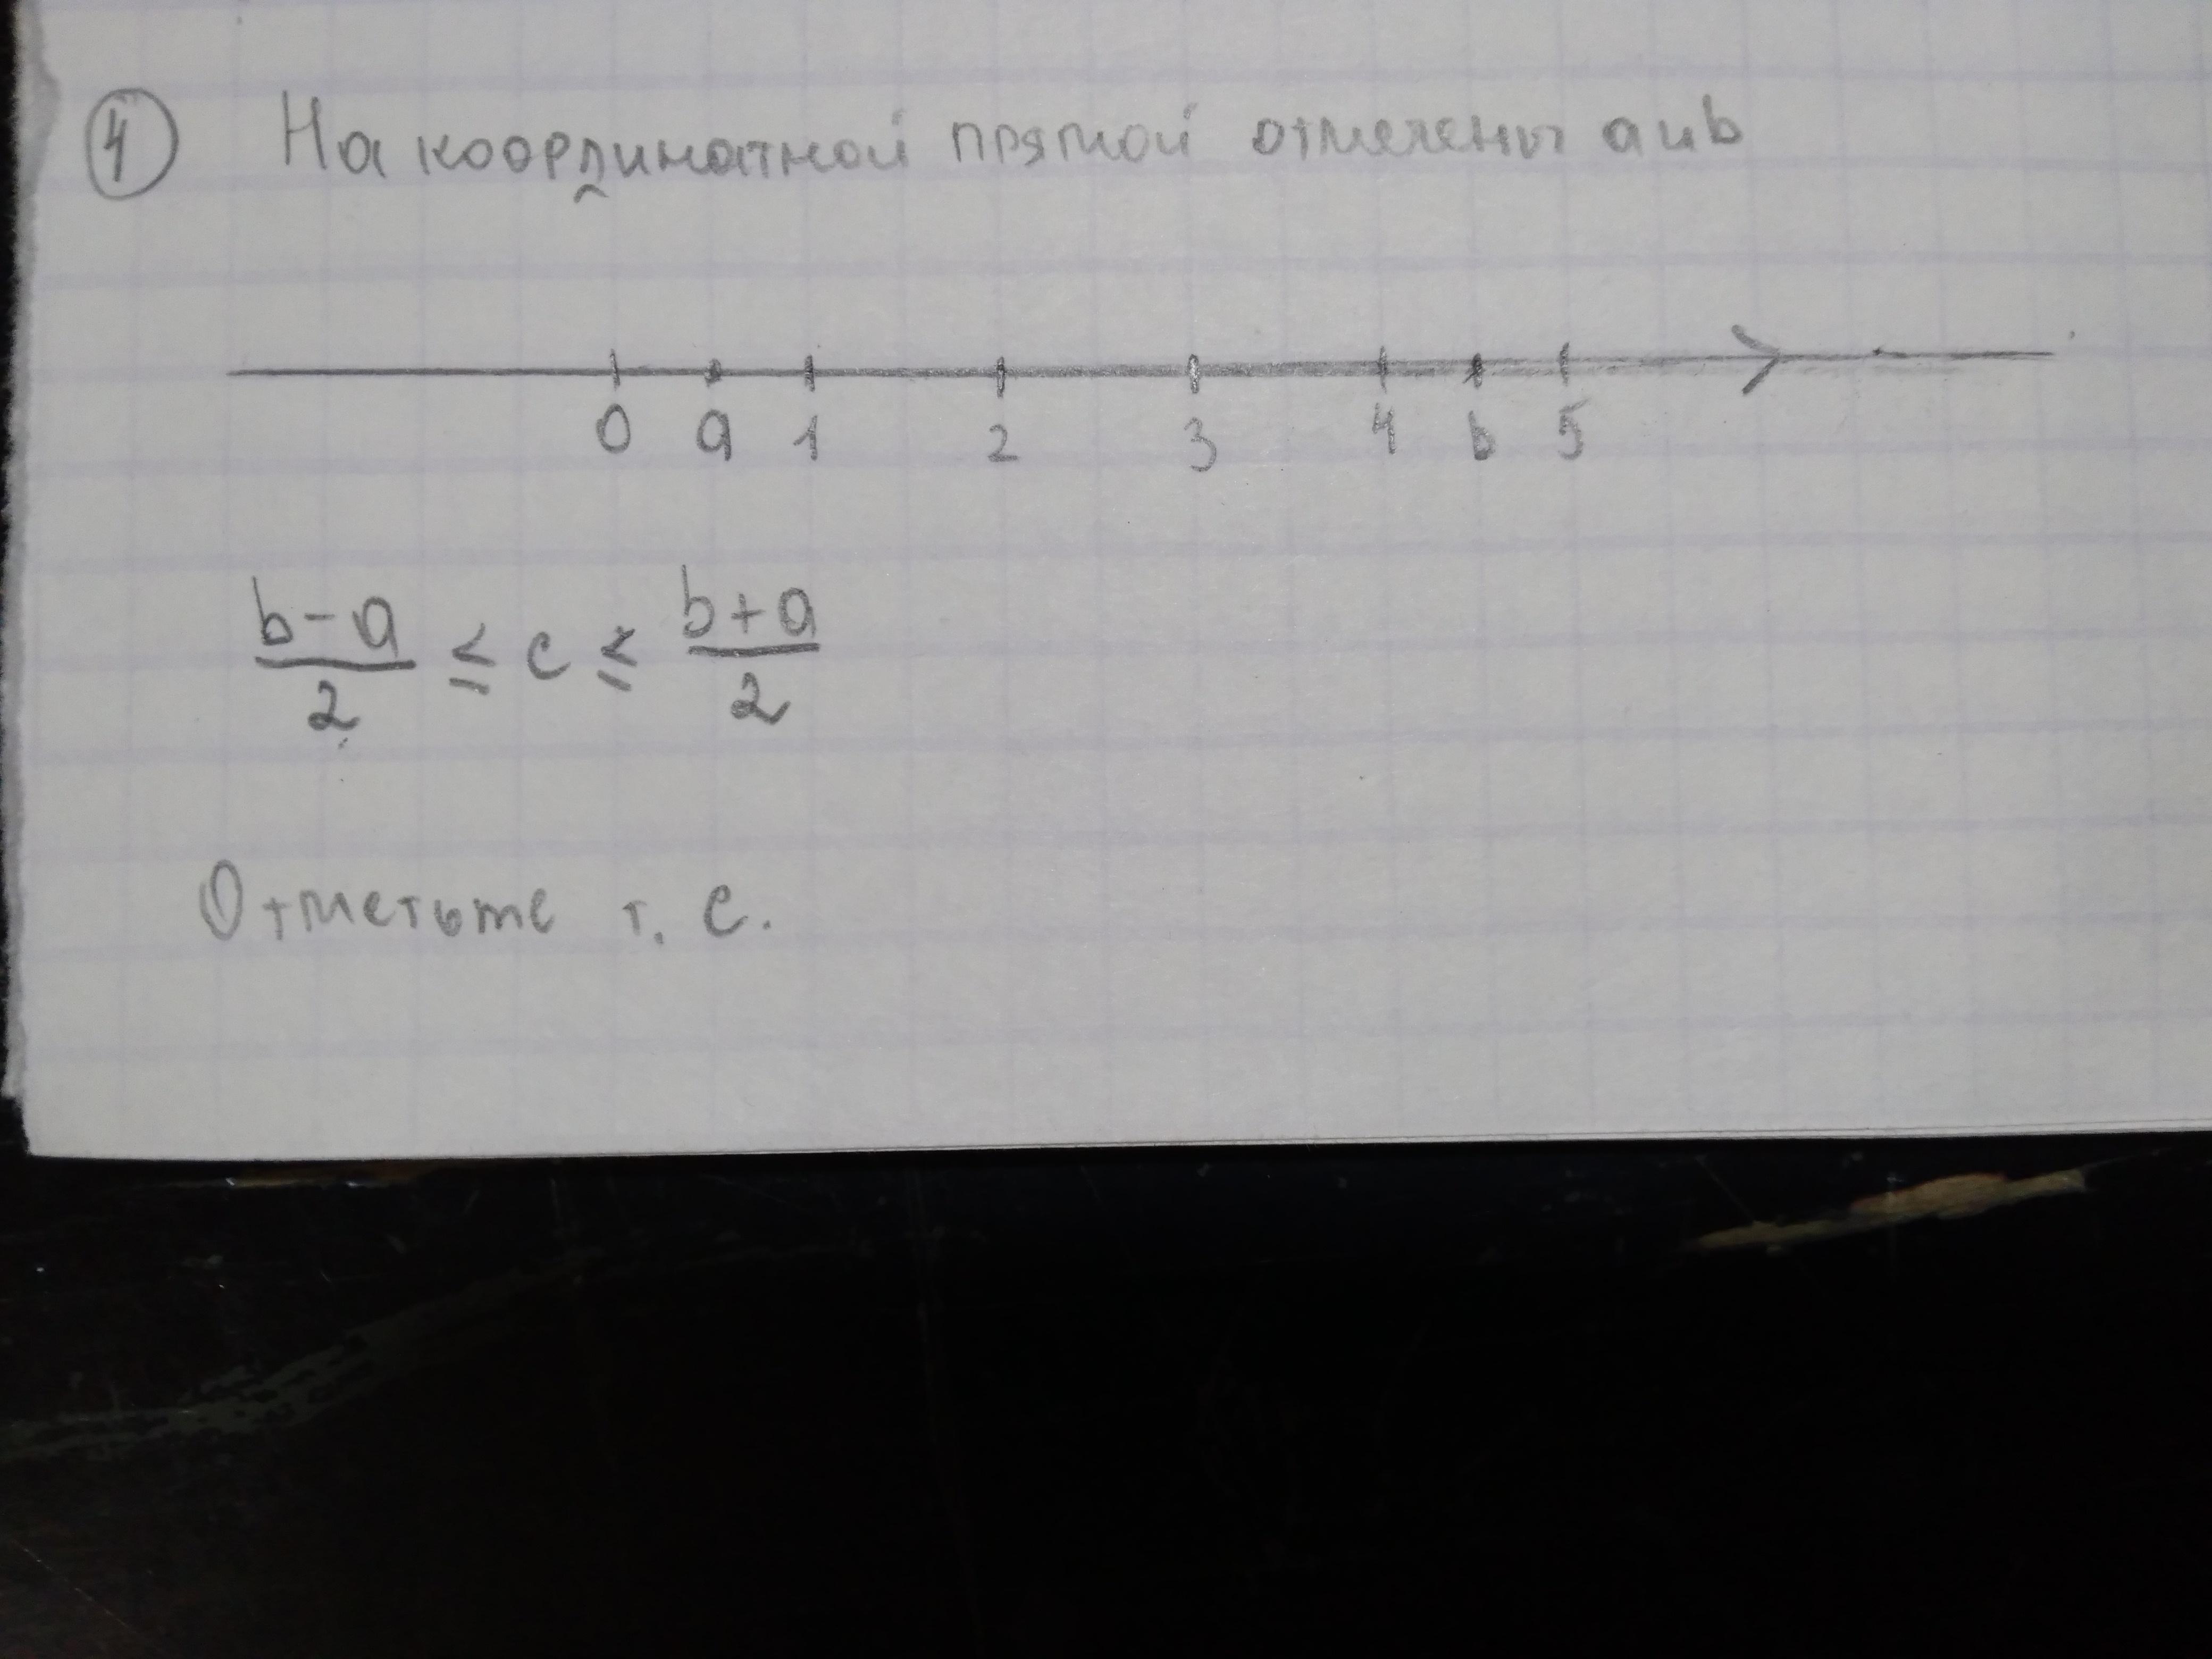 ④ На координатной прямой отмечены a и b
0 a 1 2 3 4 b 5
(b-a)/2 ≤ c ≤ (b+a)/2
Отметьте т. c.